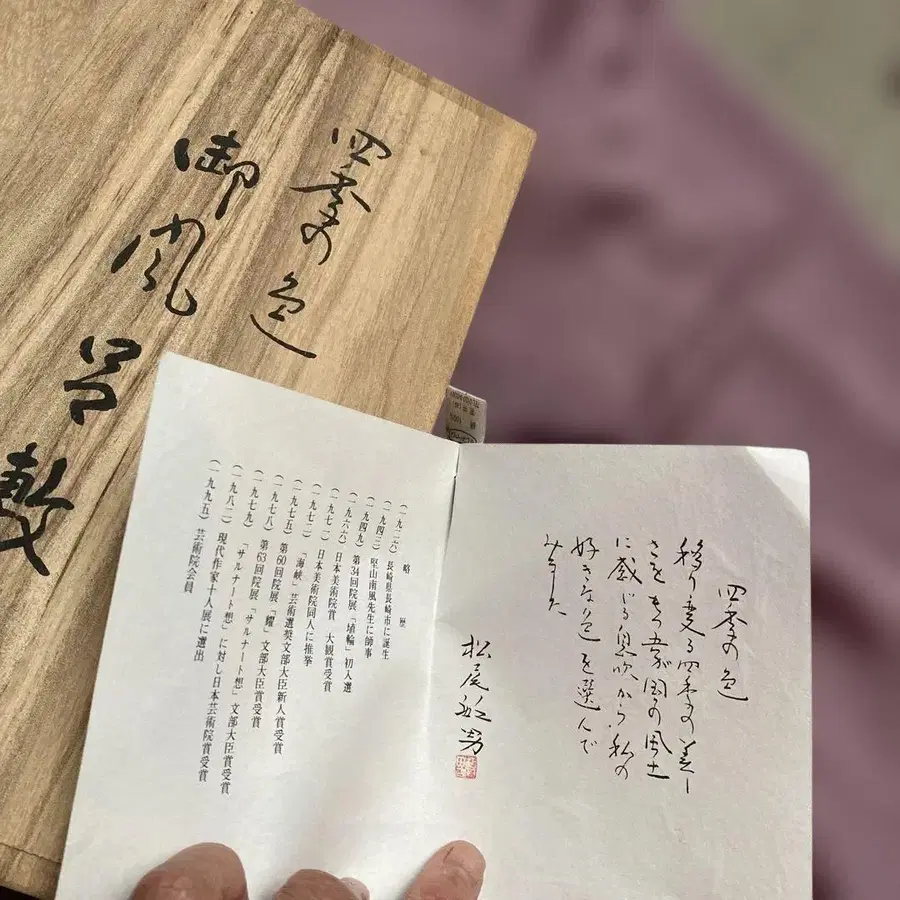 四季の色
御風呂敷
四季の色
移り変る四季の美し
さをもつ吾が国の風土
に感じる息吹から、私の
好きな色を選んで
みました
松尾敏男
略歴
(一九二六) 長崎県長崎市に誕生
(一九四三) 堅山南風先生に師事
(一九四九) 第34回院展「埴輪」初入選
(一九六六) 日本美術院賞 大観賞受賞
(一九七一) 日本美術院同人に推挙
(一九七二) 「海峡」芸術選奨文部大臣新人賞受賞
(一九七五) 第60回院展「燿」文部大臣賞受賞
(一九七八) 第63回院展「サルナート想」文部大臣賞受賞
(一九七九) 「サルナート想」に対し日本芸術院賞受賞
(一九八二) 現代作家十人展に選出
(一九九五) 芸術院会員